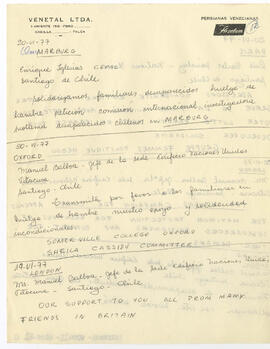 VENETAL LTDA.
PERSIANAS VENECIANAS
CHILLÁN - TALCA
20-VI-77
MARBURG
Enrique Iglesias CEPAL
Santiago de Chile
Solidarizamos familiares desaparecidos huelga de
hambre petición comisión internacional investigación
problema desaparecidos chilenos en MARBURG
20-VI-77
OXFORD
Manuel Balboa - Jefe de la sede Edificio Naciones Unidas
Vitacura
Santiago - Chile
Transmita por favor a los familiares en
huelga de hambre nuestro apoyo y solidaridad
incondicionales.
SOMERVILLE COLLEGE OXFORD
SHEILA CASSIDY COMMITTEE
19-VI-77
LONDON
Mr. Manuel Balboa, Jefe de la sede Edificio Naciones Unidas,
Vitacura - Santiago - Chile
OUR SUPPORT TO YOU ALL FROM MANY
FRIENDS IN BRITAIN